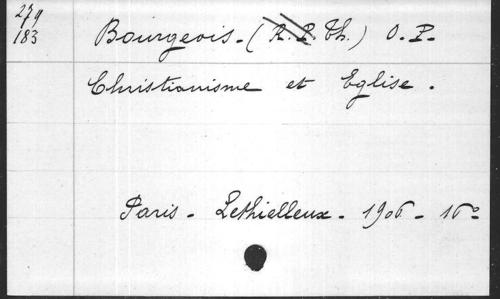 279
183
Bourgeois. (R. P. Th.) O. P.
Christianisme et Eglise.
Paris - Lethielleux - 1906 - 16°